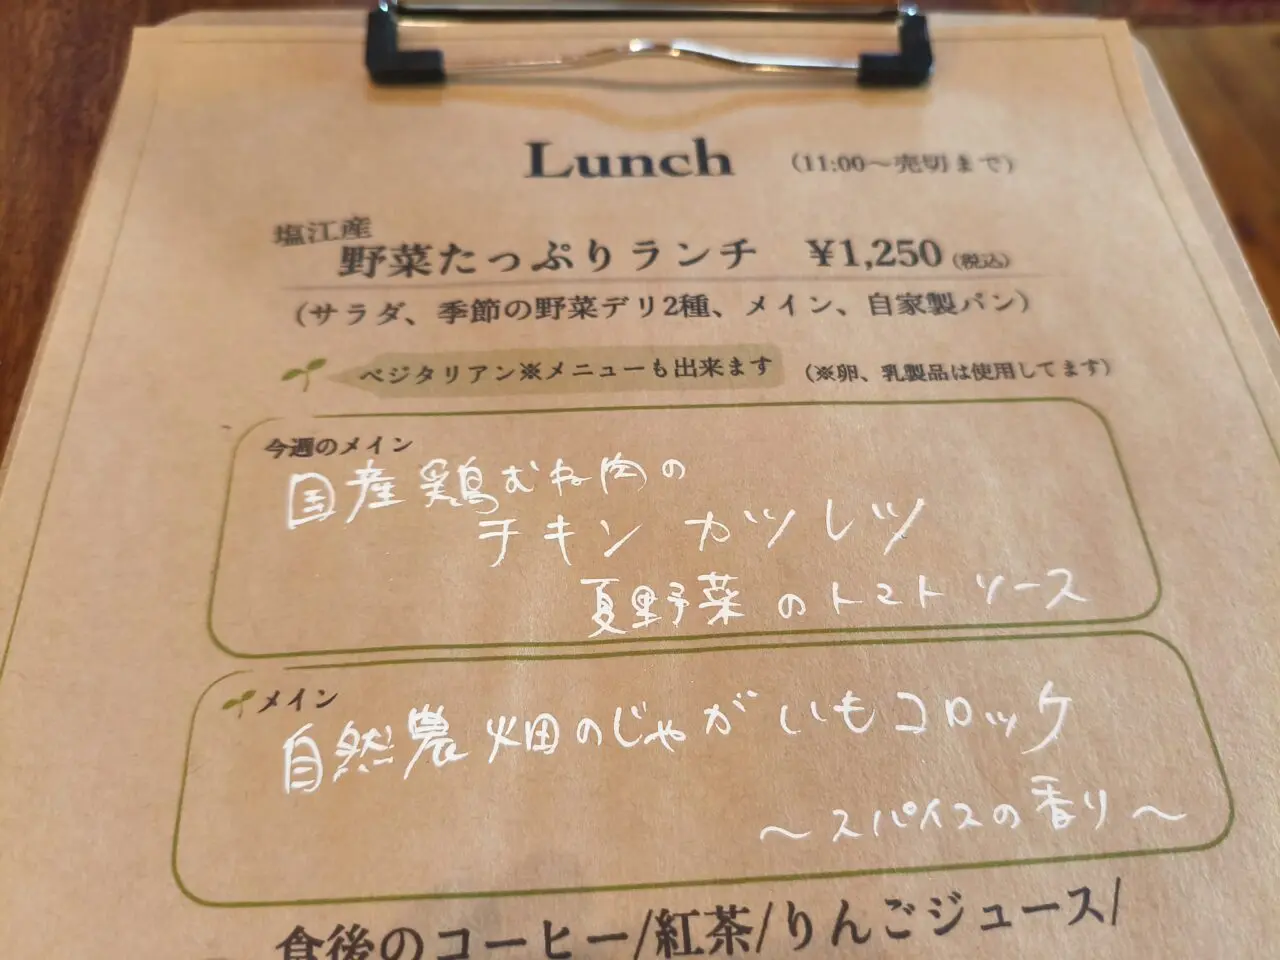 Lunch (11:00〜売切まで)
塩江産
野菜たっぷりランチ ¥1,250(税込)
(サラダ、季節の野菜デリ2種、メイン、自家製パン)
ベジタリアン※メニューも出来ます (※卵、乳製品は使用してます)
今週のメイン
国産鶏むね肉の
チキン カツレツ
夏野菜のトマトソース
メイン
自然農畑のじゃがいもコロッケ
〜スパイスの香り〜
食後のコーヒー/紅茶/りんごジュース/